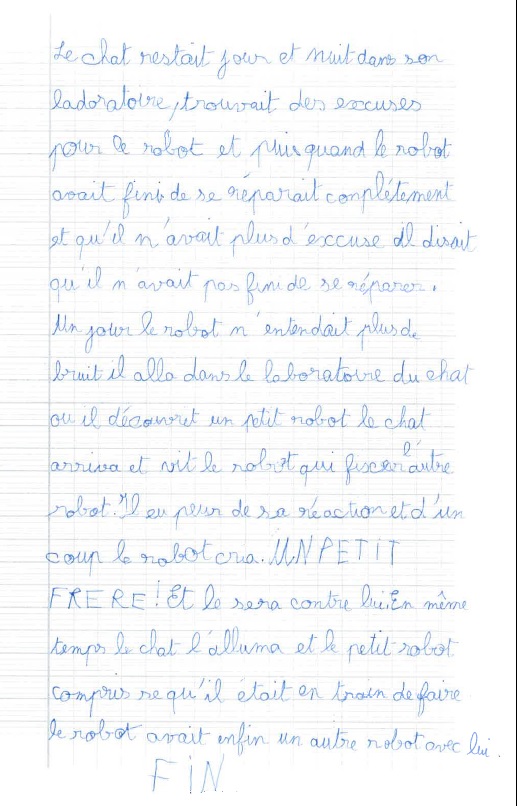 Le chat restait jour et nuit dans son
ladoratoire, trouvait des excuses
pour le robot et puis quand le robot
avait fini de se réparait complétement
et qu'il n'avait plus d'excuse il disait
qu'il n'avait pas fini de se réparer.
Un jour le robot n'entendait plus de
bruit il alla dans le laboratoire du chat
ou il découvret un petit robot le chat
arriva et vit le robot qui fiscer l'autre
robot. Il eu peur de sa réaction et d'un
coup le robot cria. UN PETIT
FRERE! Et le sera contre lui. En même
temps le chat l'alluma et le petit robot
compris se qu'il était en train de faire
le robot avait enfin un autre robot avec lui.
FIN